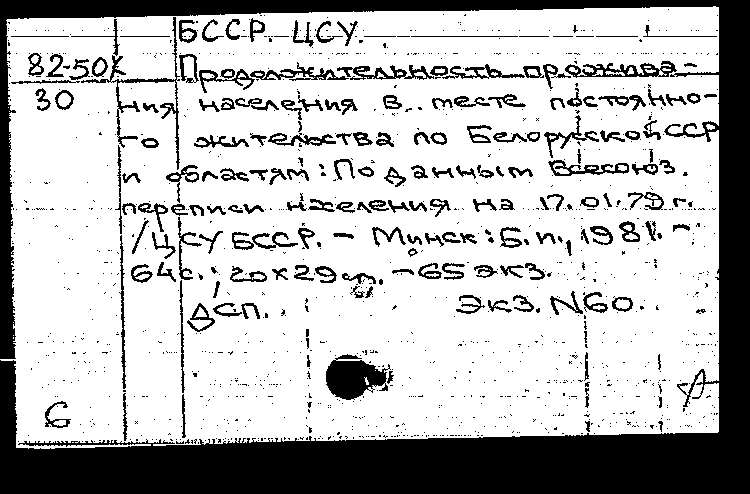 БССР. ЦСУ.
82-50К Продолжительность прожива-
30 ния населения в месте постоянно-
го жительства по Белорусской ССР
и областям: По данным Всесоюз.
переписи населения на 17.01.79 г.
/ЦСУ БССР. - Минск: Б.и., 1981. -
64 с.; 20х29 см. - 65 экз.
ДСП. Экз. N60.
6